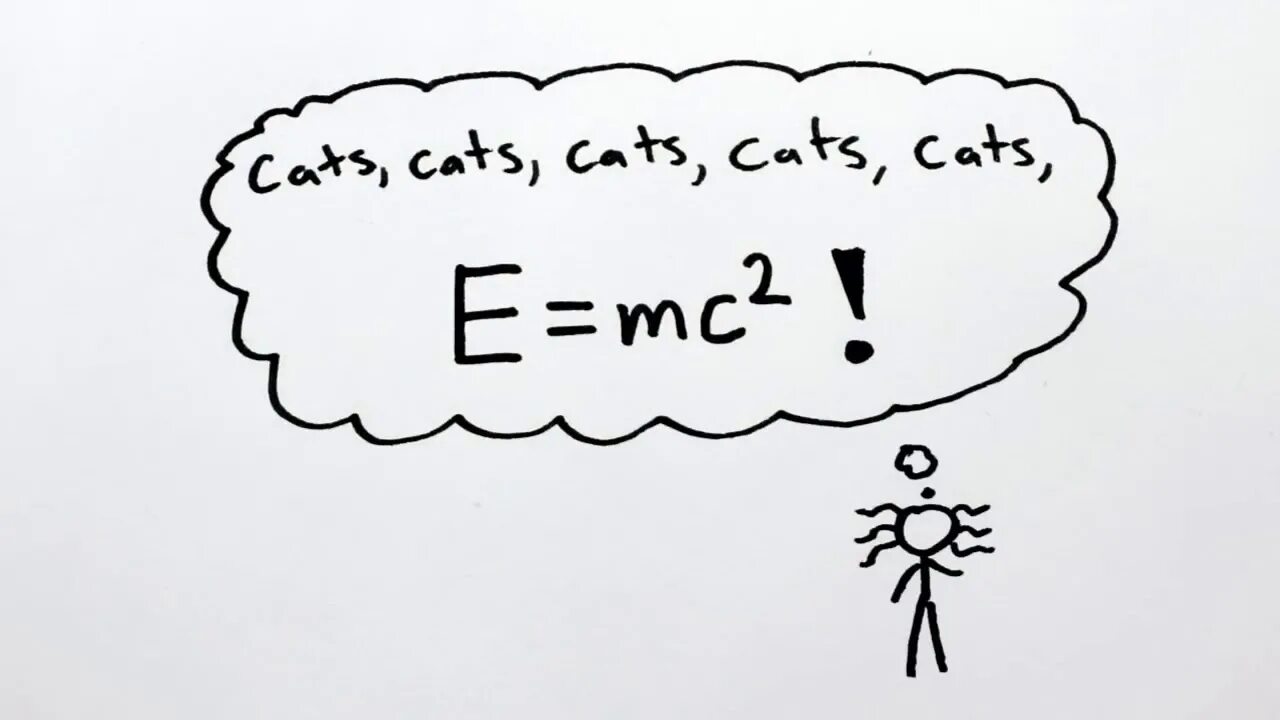 Cats, cats, cats, cats, cats,
E=mc² !